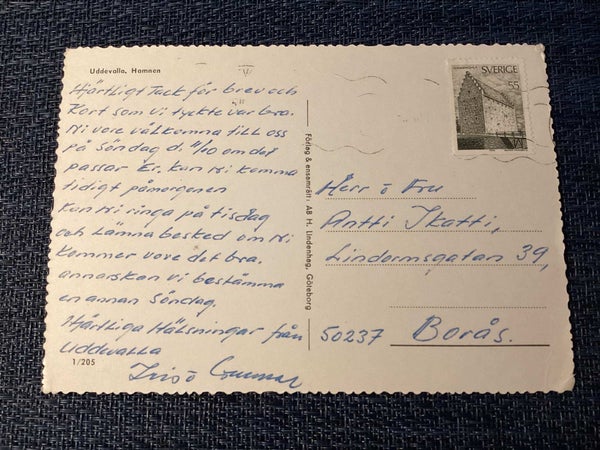 Uddevalla, Hamnen
Hjärtligt Tack för brev och
Kort som vi tyckte var bra.
Ni vore välkomna till oss
på Söndag d. 11/10 om det
passar Er. kan Ni komma
tidigt påmorgonen
Kan Ni ringa på tisdag
och lämna besked om Ni
kommer vore det bra.
annarskan vi bestämma
en annan Söndag.
Hjärtliga Hälsningar från
Uddevalla
Iris o Gunnar
1/205
Förlag & ensamrätt: AB H. Lindenhag, Göteborg
SVERIGE
55
Herr o Fru
Antti Ikatti,
Lindormsgatan 39,
50237 Borås.